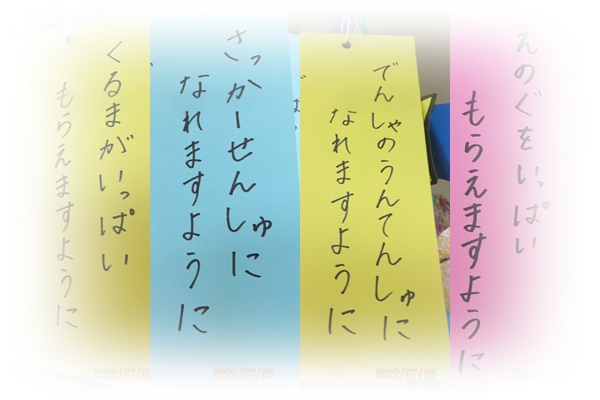 くるまがいっぱい
もらえますように
さっかーせんしゅに
なれますように
でんしゃのうんてんしゅに
なれますように
えのぐをいっぱい
もらえますように